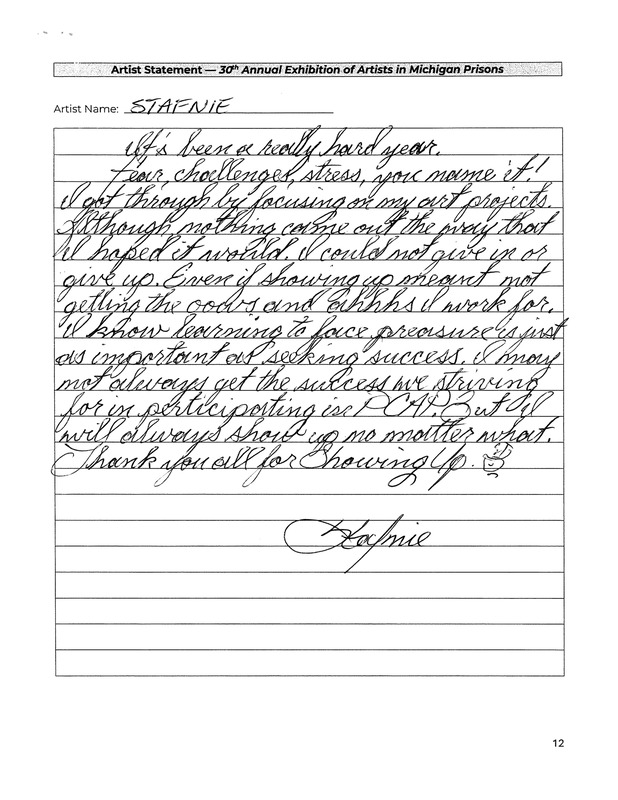 Artist Statement — 30th Annual Exhibition of Artists in Michigan Prisons
Artist Name: STAFNIE
It's been a really hard year.
Fear, challenges, stress, you name it!
I got through by focusing on my art projects.
Although nothing came out the way that
I hoped it would. I could not give in or
give up. Even if showing up meant not
getting the ooohs and ahhhs I work for.
I know learning to face preasure is just
as important as seeking success. I may
not always get the success we striving
for in participating in PCAP. But I
will always show up no matter what.
Thank you all for Showing Up.
Stafnie
12